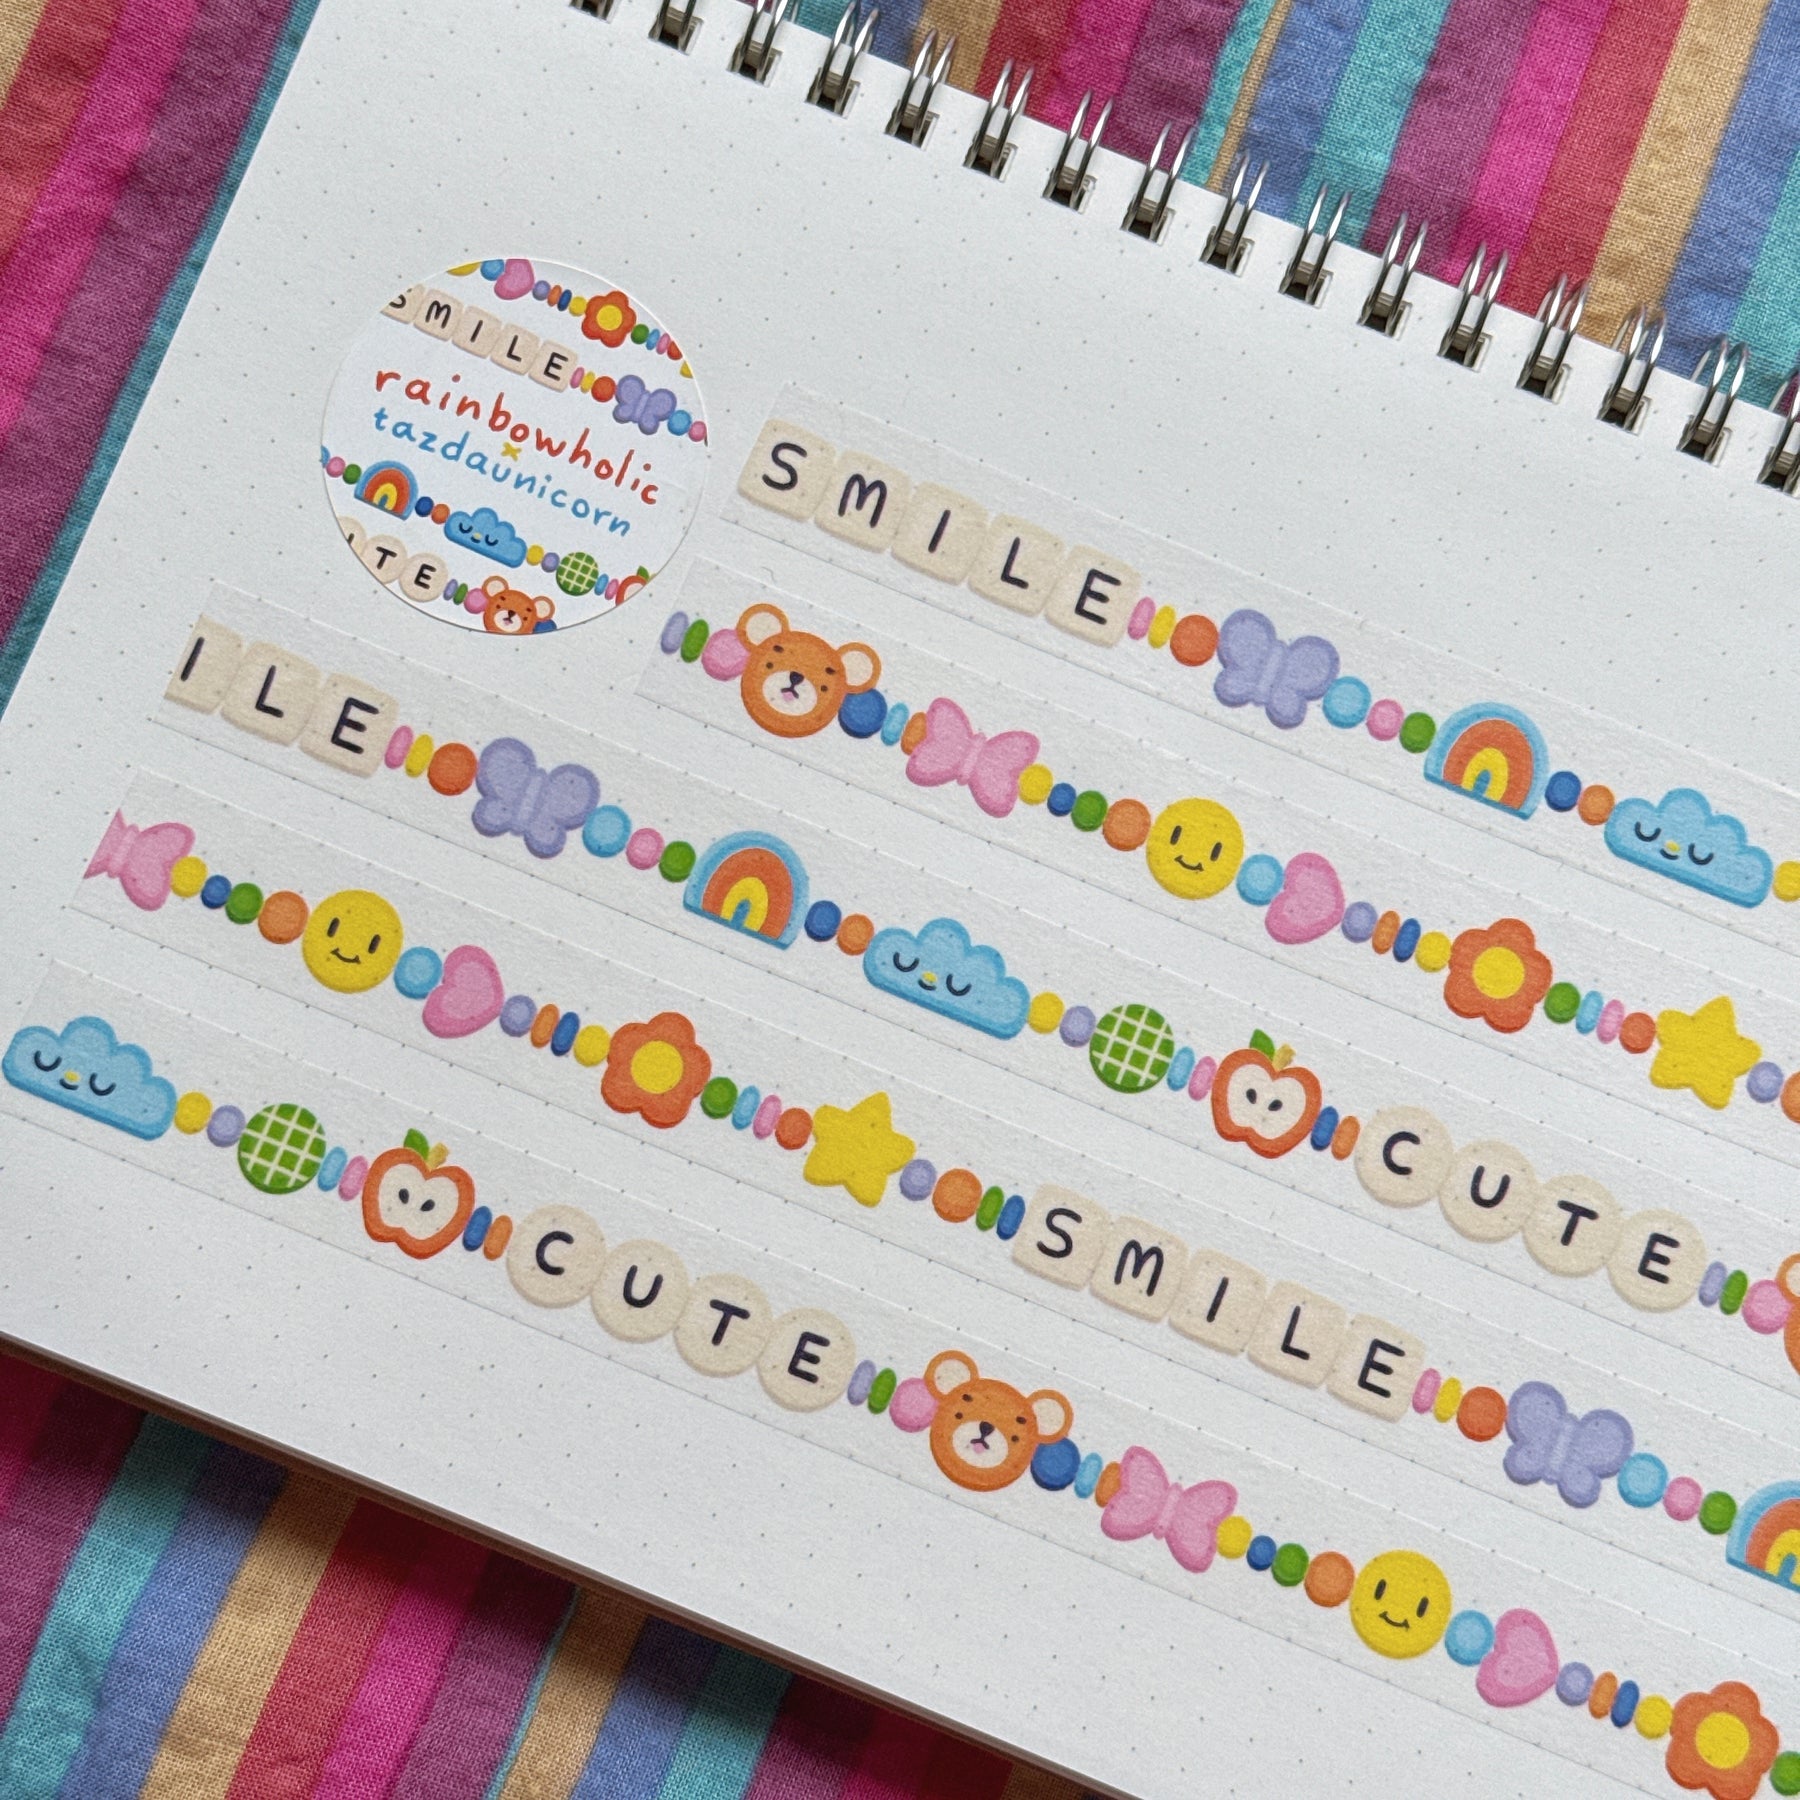 SMILE
rainbowholic
x
tazdaunicorn
TE
SMILE
ILE
CUTE
SMILE
CUTE